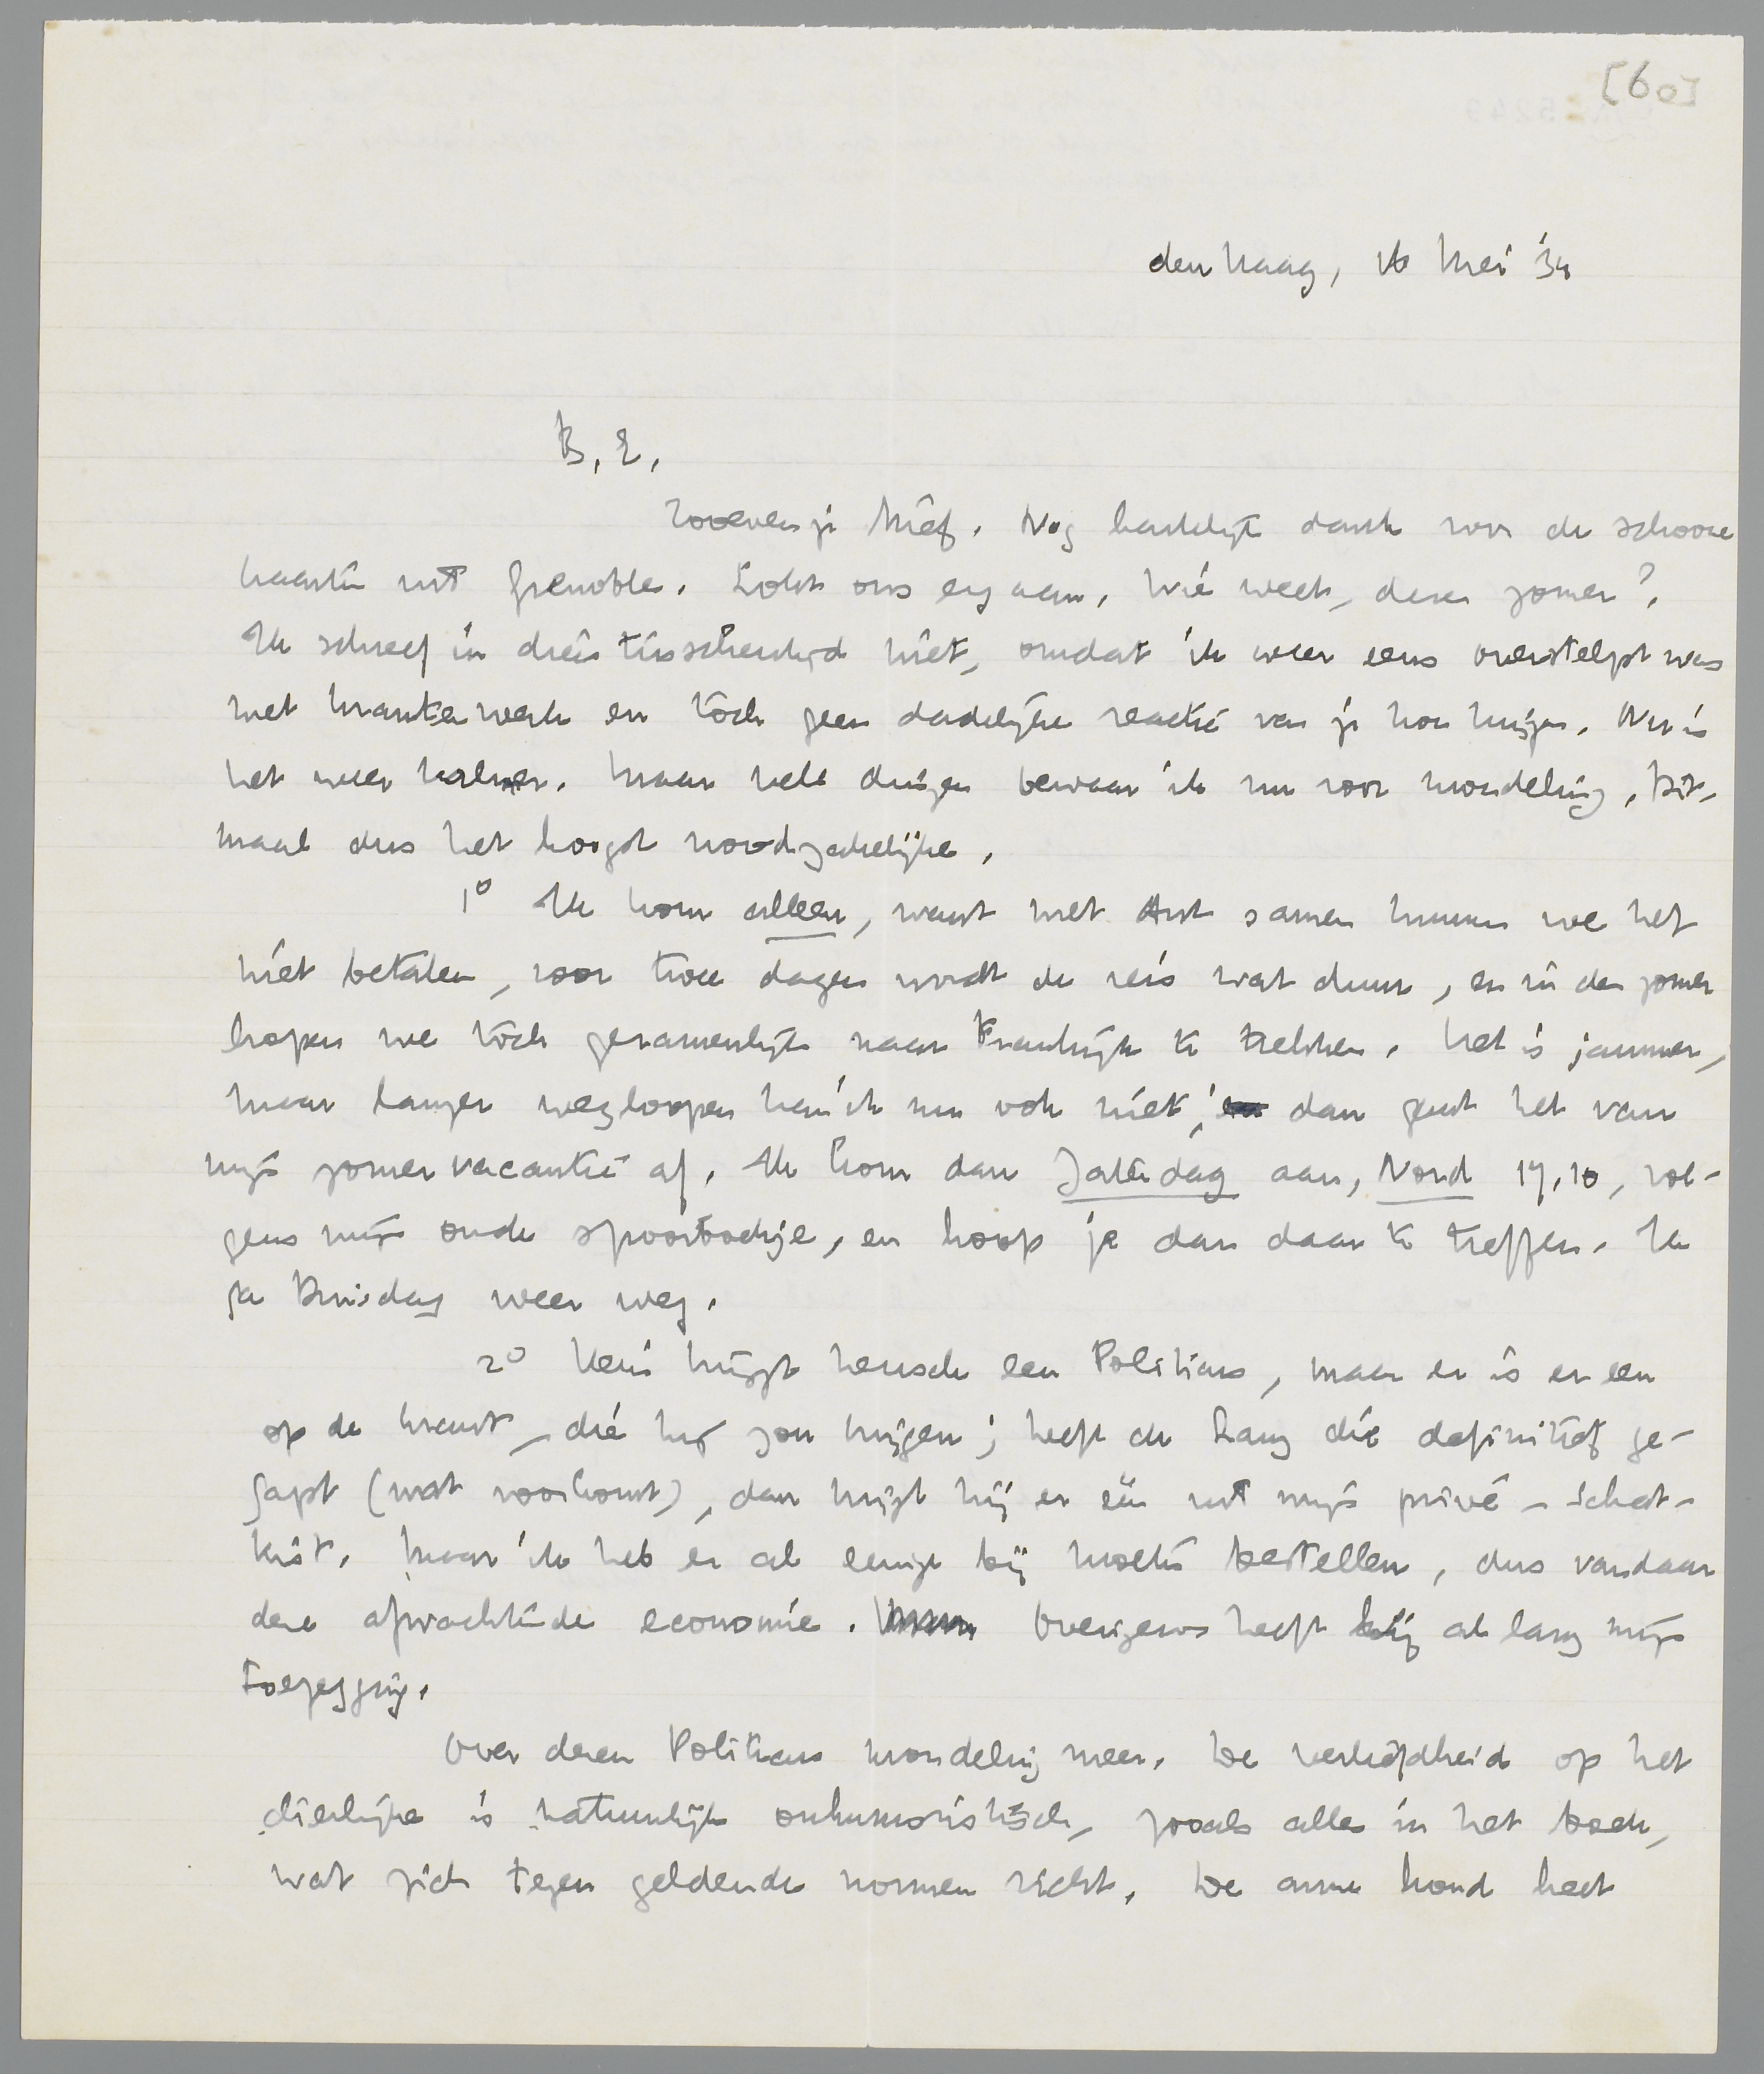 [60]
den Haag, 16 Mei '34
B. E.,
Zooeven je brief. Nog hartelijk dank voor de schoone
kaarten uit Grenoble. Lokt ons erg aan, wie weet, dezen zomer?
Ik schreef in dien tusschentijd niet, omdat ik weer eens overstelpt was
met krantenwerk en tòch geen dadelijke reactie van je kon krijgen. Nu is
het weer kalmer. Maar vele dingen bewaar ik nu voor mondeling. Dit-
maal dus het hoogst noodzakelijke.
1° Ik kom alleen, want met Ant samen kunnen we het
niet betalen, voor twee dagen wordt de reis wat duur, en in den zomer
hopen we tòch gezamenlijk naar Frankrijk te trekken. Het is jammer,
maar langer wegloopen kan ik nu ook niet; dan gaat het van
mijn zomervacantie af. Ik kom dan Zaterdag aan, Nord 17.10, vol-
gens mijn oude spoorboekje, en hoop je dan daar te treffen. Ik
ga Dinsdag weer weg.
2° Kens krijgt heusch een Politicus, maar er is er een
op de krant, die hij zou krijgen; heeft de Lang die definitief ge-
gapt (wat voorkomt), dan krijgt hij er één uit mijn privé-schat-
kist. Maar ik heb er al eenige bij moeten bestellen, dus vandaar
deze afwachtende economie. Overigens heeft hij al lang mijn
toezegging.
Over dezen Politicus mondeling meer. De verliefdheid op het
dierlijke is natuurlijk onhumoristisch, zooals alles in het boek,
wat zich tegen geldende normen richt. De arme hond heet